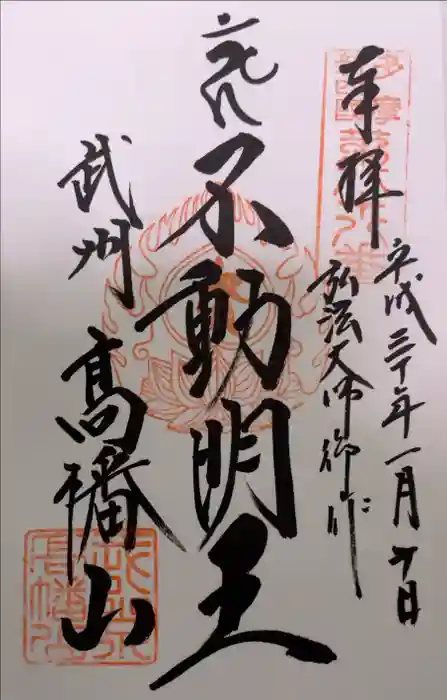 奉拝
平成三十年一月十日
弘法大師御作
不動明王
武州
髙幡山